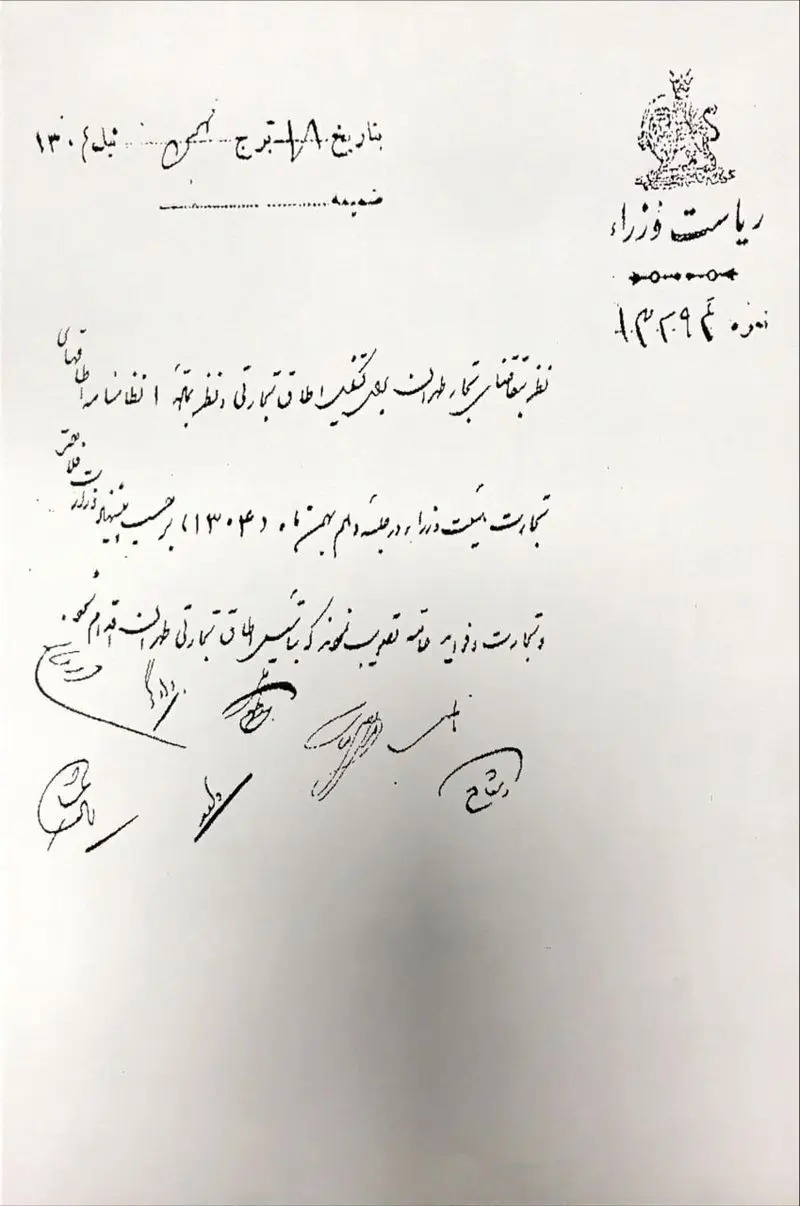 ریاست وزراء
نمره ۱۳۲۹۴
بتاریخ ۱۸ برج بهمن ۱۳۰۴
ضمیمه
نظر بتقاضای تجار طهران برای تشکیل اطاق تجارتی و نظر بماده ۱ نظامنامه اطاقهای
تجارت هیئت وزراء در جلسه دهم بهمن ماه (۱۳۰۴) بر حسب پیشنهاد وزارت فلاحت
و تجارت و فواید عامه تصویب نمودند که بتأسیس اطاق تجارتی طهران اقدام شود.